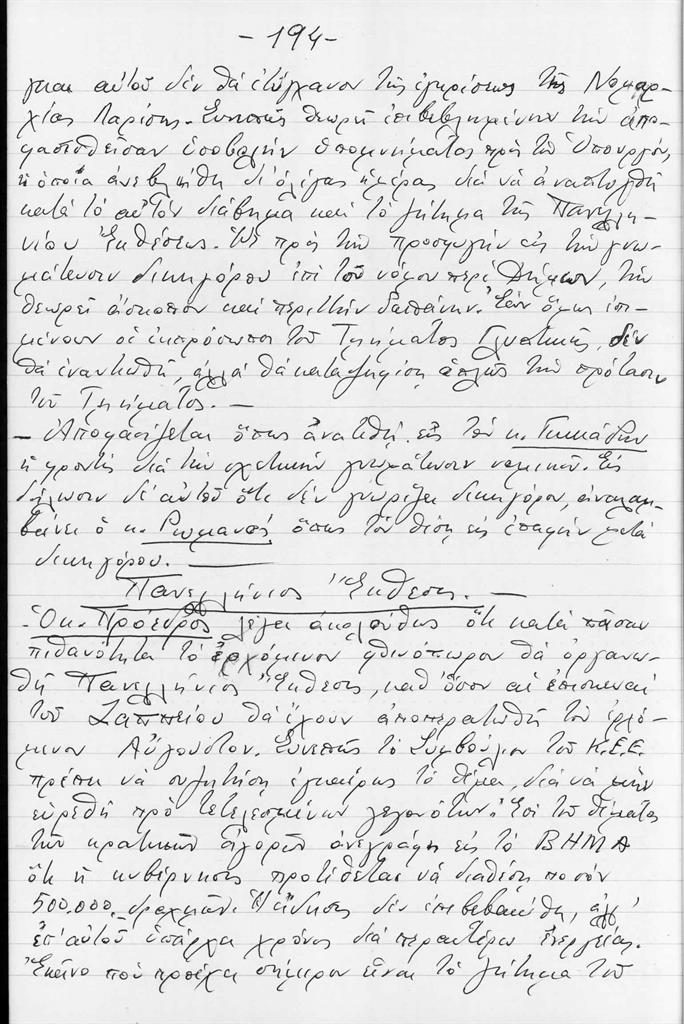 -194-
γειαι αὐτοῦ δέν θά ἐτύγχανον τῆς ἐγκρίσεως τῆς Νομαρ-
χίας Λαρίσης. Συνεπῶς θεωρεῖ ἐπιβεβλημένην τήν ἀπο-
φασισθεῖσαν ὑποβολήν ὑπομνήματος πρός τόν Ὑπουργόν,
ἡ ὁποία ἀνεβλήθη δι' ὀλίγας ἡμέρας διά νά ἀναπτυχθῇ
κατά τό αὐτόν διάβημα καί τό ζήτημα τῆς Πανελλη-
νίου Ἐκθέσεως. Ὡς πρός τήν προσφυγήν εἰς τήν γνω-
μάτευσιν δικηγόρου ἐπί τοῦ νόμου περί Δήμων, τήν
θεωρεῖ ἄσκοπον καί περιττήν δαπάνην. Ἐάν ὅμως ἐπι-
μένουν οἱ ἐκπρόσωποι τοῦ Τμήματος Γλυπτικῆς, δέν
θά ἐναντιωθῇ, ἀλλά θά καταψηφίσῃ ἁπλῶς τήν πρότασιν
τοῦ Τμήματος. —
- Ἀποφασίζεται ὅπως ἀνατεθῇ εἰς τόν κ.
ἡ φροντίς διά τήν σχετικήν γνωμάτευσιν νομικοῦ. Εἰς
δήλωσιν δι' αὐτοῦ ὅτι δέν γνωρίζει δικηγόρον, ἀναλαμ-
βάνει ὁ κ. Ρωμανός ὅπως τόν θέσῃ εἰς ἐπαφήν μετά
δικηγόρου. ———
Πανελλήνιος Ἔκθεσις. —
- Ὁ κ. Πρόεδρος λέγει ἀκολούθως ὅτι κατά πᾶσαν
πιθανότητα τό ἐρχόμενον φθινόπωρον θά ὀργανω-
θῇ Πανελλήνιος Ἔκθεσις, καθ' ὅσον αἱ ἐπισκευαί
τοῦ Ζαππείου θά ἔχουν ἀποπερατωθῇ τόν ἐρχό-
μενον Αὔγουστον. Συνεπῶς τό Συμβούλιον τοῦ Κ.Ε.Ε.
πρέπει νά συζητήσῃ ἐγκαίρως τό θέμα, διά νά μήν
εὑρεθῇ πρό τετελεσμένων γεγονότων. Ἐπί τοῦ θέματος
τῶν κρατικῶν ἀγορῶν ἀνεγράφη εἰς τό ΒΗΜΑ
ὅτι ἡ κυβέρνησις προτίθεται νά διαθέσῃ ποσόν
500.000.- δραχμῶν. Ἡ εἴδησις δέν ἐπεβεβαιώθη, ἀλλ'
ἐπ' αὐτοῦ ὑπάρχει χρόνος διά περαιτέρω ἐνεργείας.
Ἐκεῖνο πού προέχει σήμερον εἶναι τό ζήτημα τοῦ